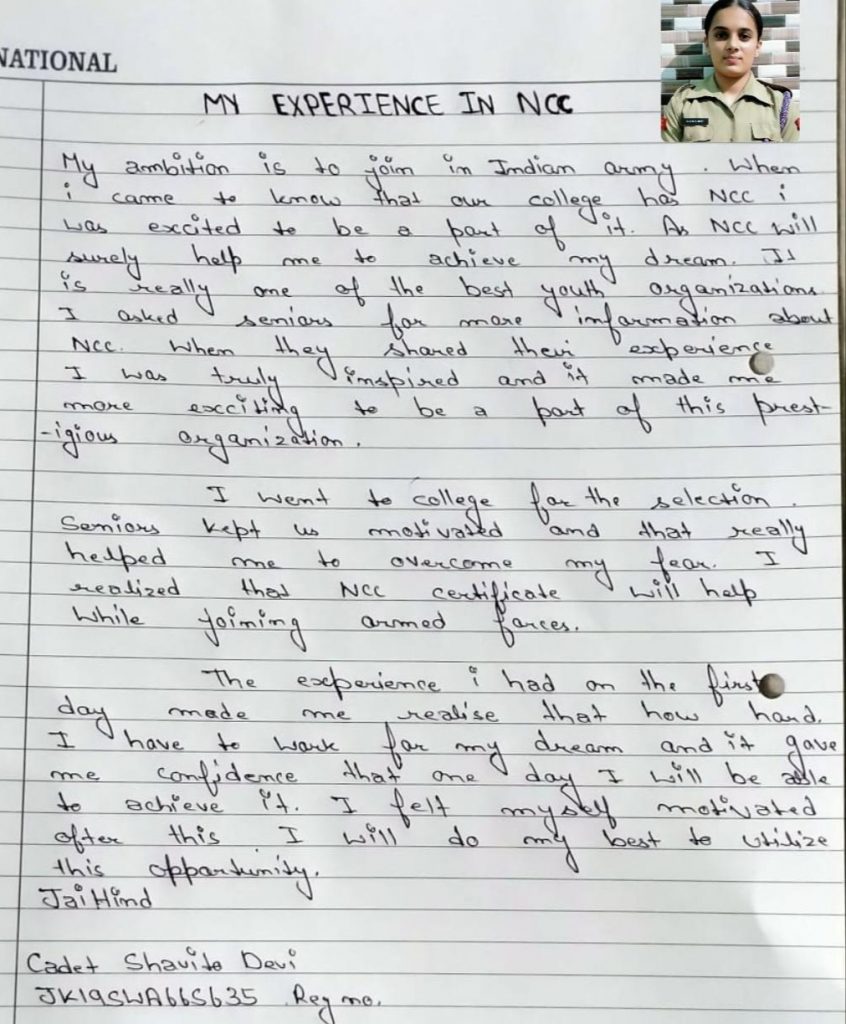 NATIONAL
MY EXPERIENCE IN NCC
My ambition is to join in Indian army. When
i came to know that our college has NCC i
was excited to be a part of it. As NCC will
surely help me to achieve my dream. It
is really one of the best youth organizations.
I asked seniors for more information about
NCC. When they shared their experience
I was truly inspired and it made me
more exciting to be a part of this prest-
-igious organization.
I went to college for the selection.
Seniors kept us motivated and that really
helped me to overcome my fear. I
realized that NCC certificate will help
while joining armed forces.
The experience i had on the first
day made me realise that how hard.
I have to work for my dream and it gave
me confidence that one day I will be able
to achieve it. I felt myself motivated
after this. I will do my best to utilize
this opportunity.
Jai Hind
Cadet Shavita Devi
JK19SWA66S635 Reg no.